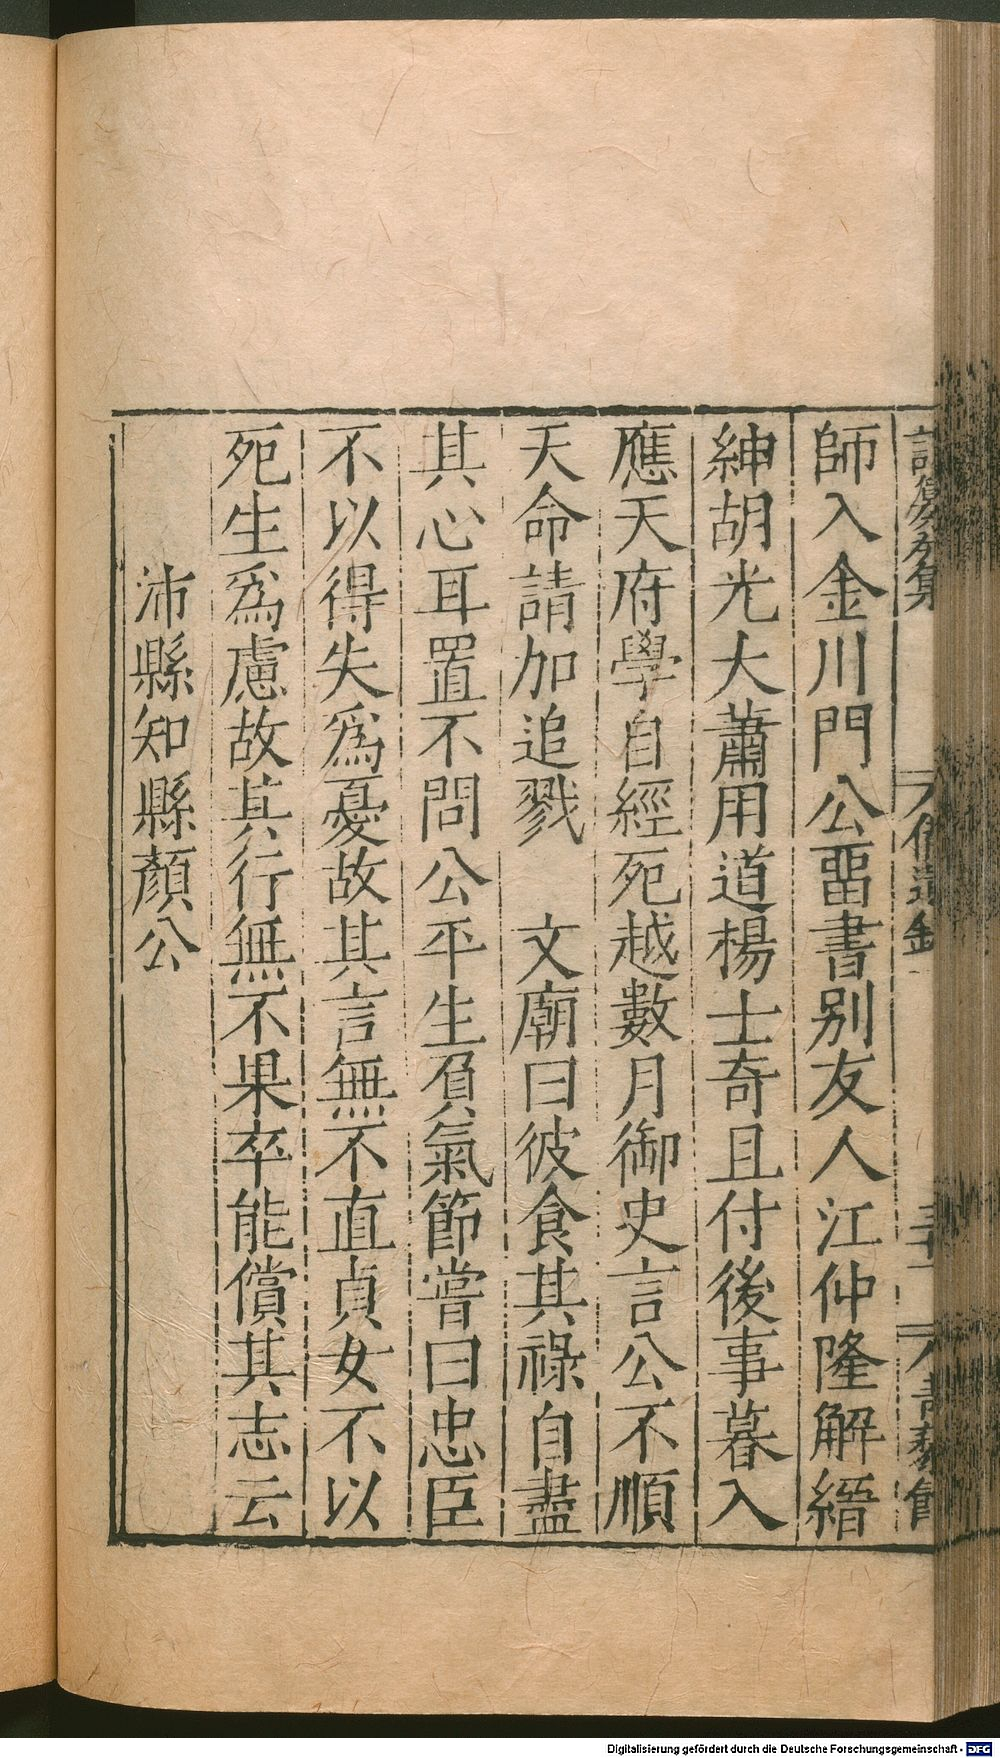 師入金川門公畱書別友人江仲隆解縉
紳胡光大蕭用道楊士奇且付後事暮入
應天府學自經死越數月御史言公不順
天命請加追戮　文廟曰彼食其祿自盡
其心耳置不問公平生負氣節嘗曰忠臣
不以得失爲憂故其言無不直貞女不以
死生爲慮故其行無不果卒能償其志云
沛縣知縣顏公
Digitalisierung gefördert durch die Deutsche Forschungsgemeinschaft - DFG